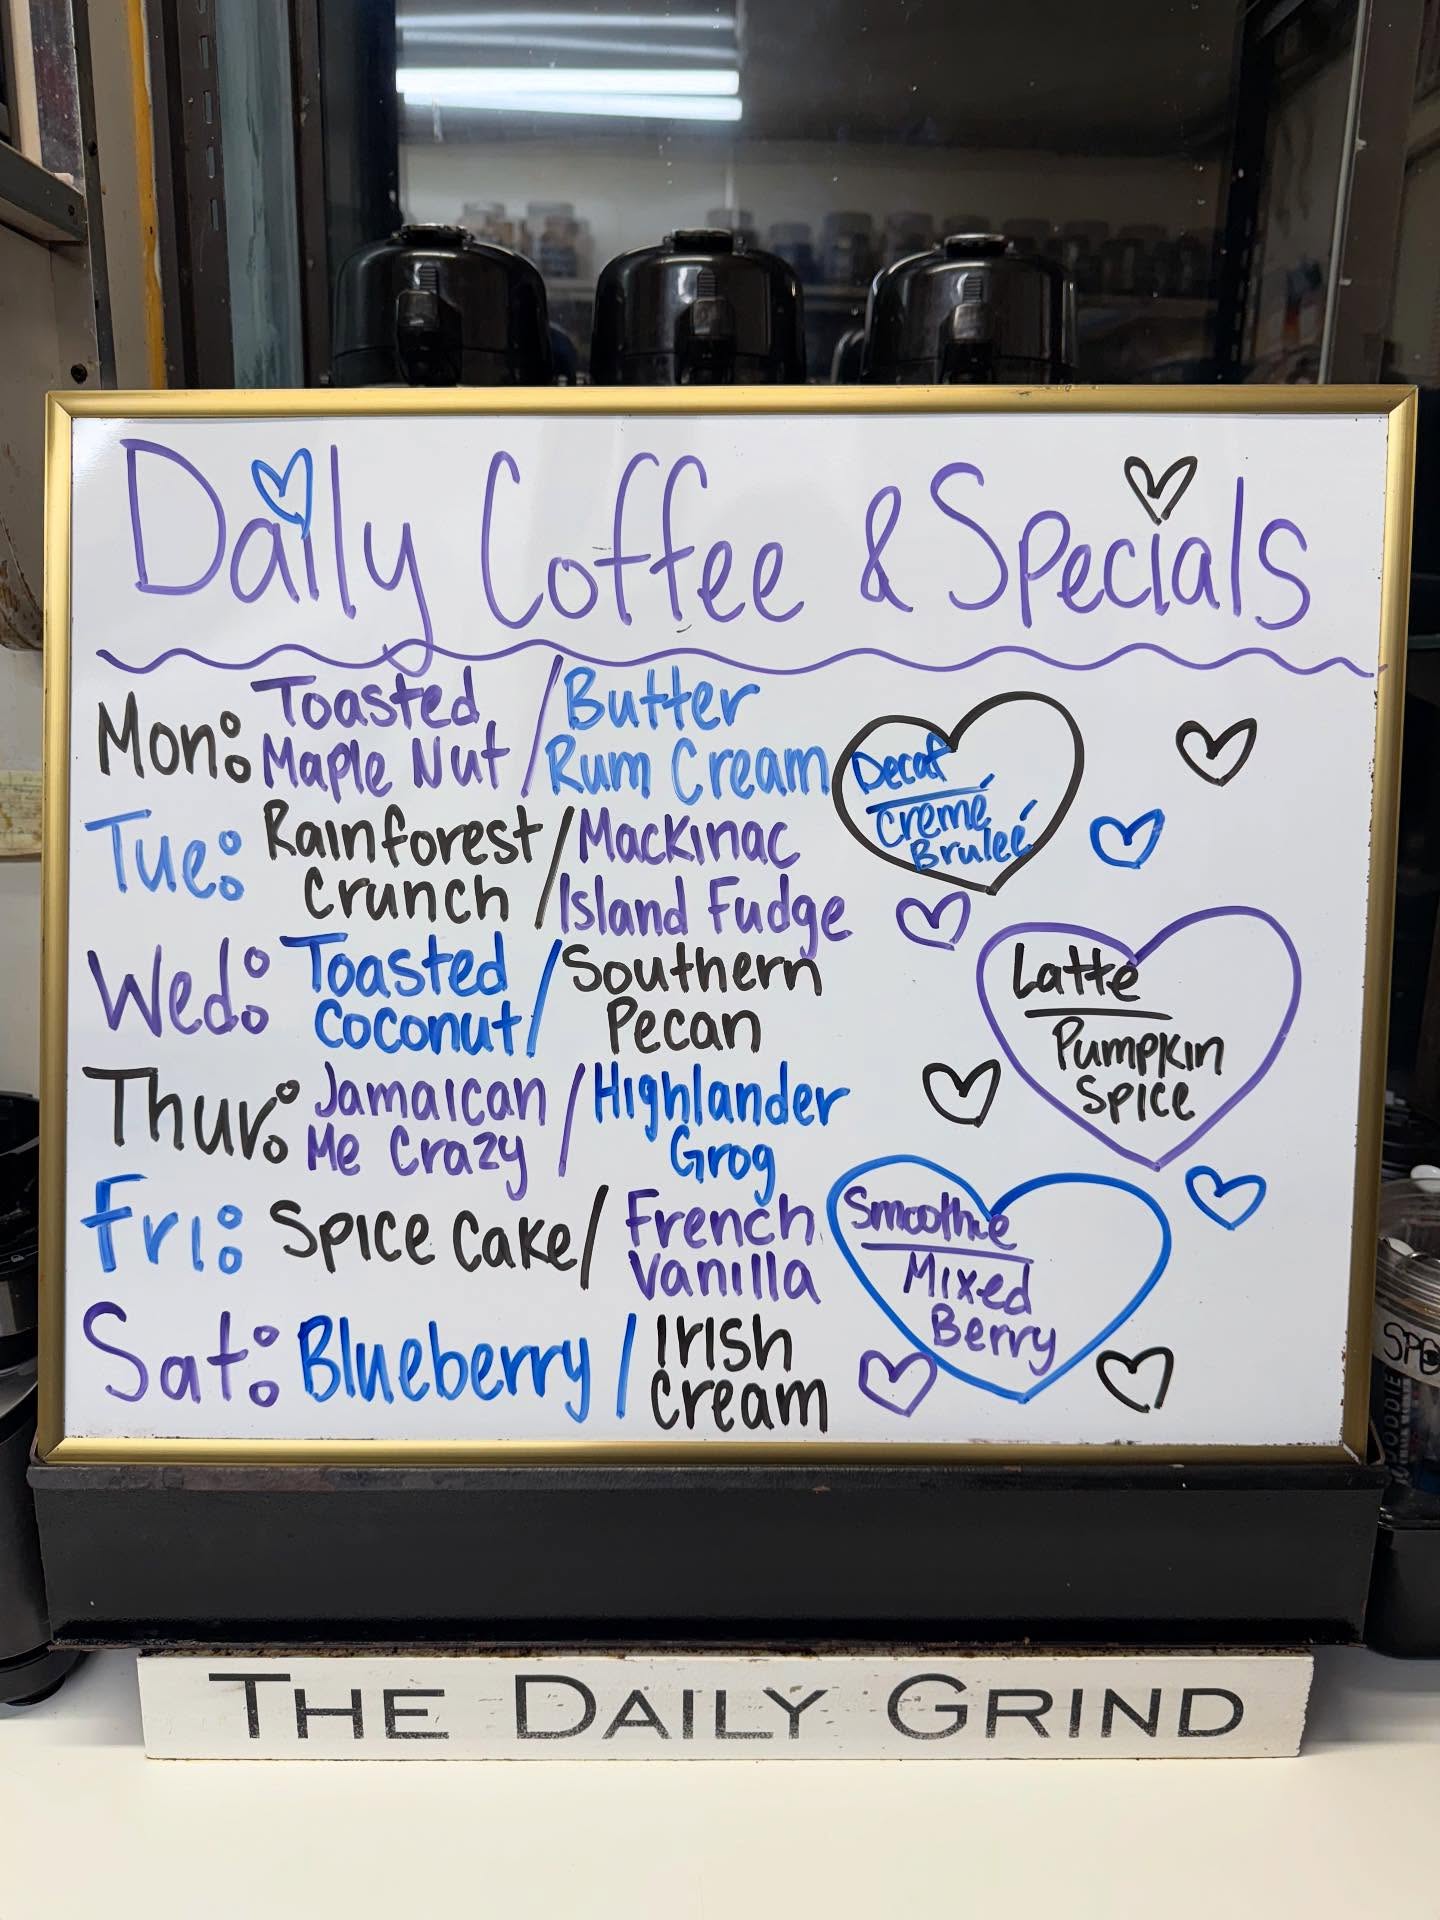 Daily Coffee & Specials
Mon: Toasted / Butter
Maple Nut Rum Cream
Tue: Rainforest / Mackinac
Crunch Island Fudge
Wed: Toasted / Southern
Coconut Pecan
Thur: Jamaican / Highlander
Me Crazy Grog
Fri: Spice Cake / French
Vanilla
Sat: Blueberry / Irish
Cream
Decaf
Cremé
Bruleé
Latte
Pumpkin
Spice
Smoothie
Mixed
Berry
THE DAILY GRIND